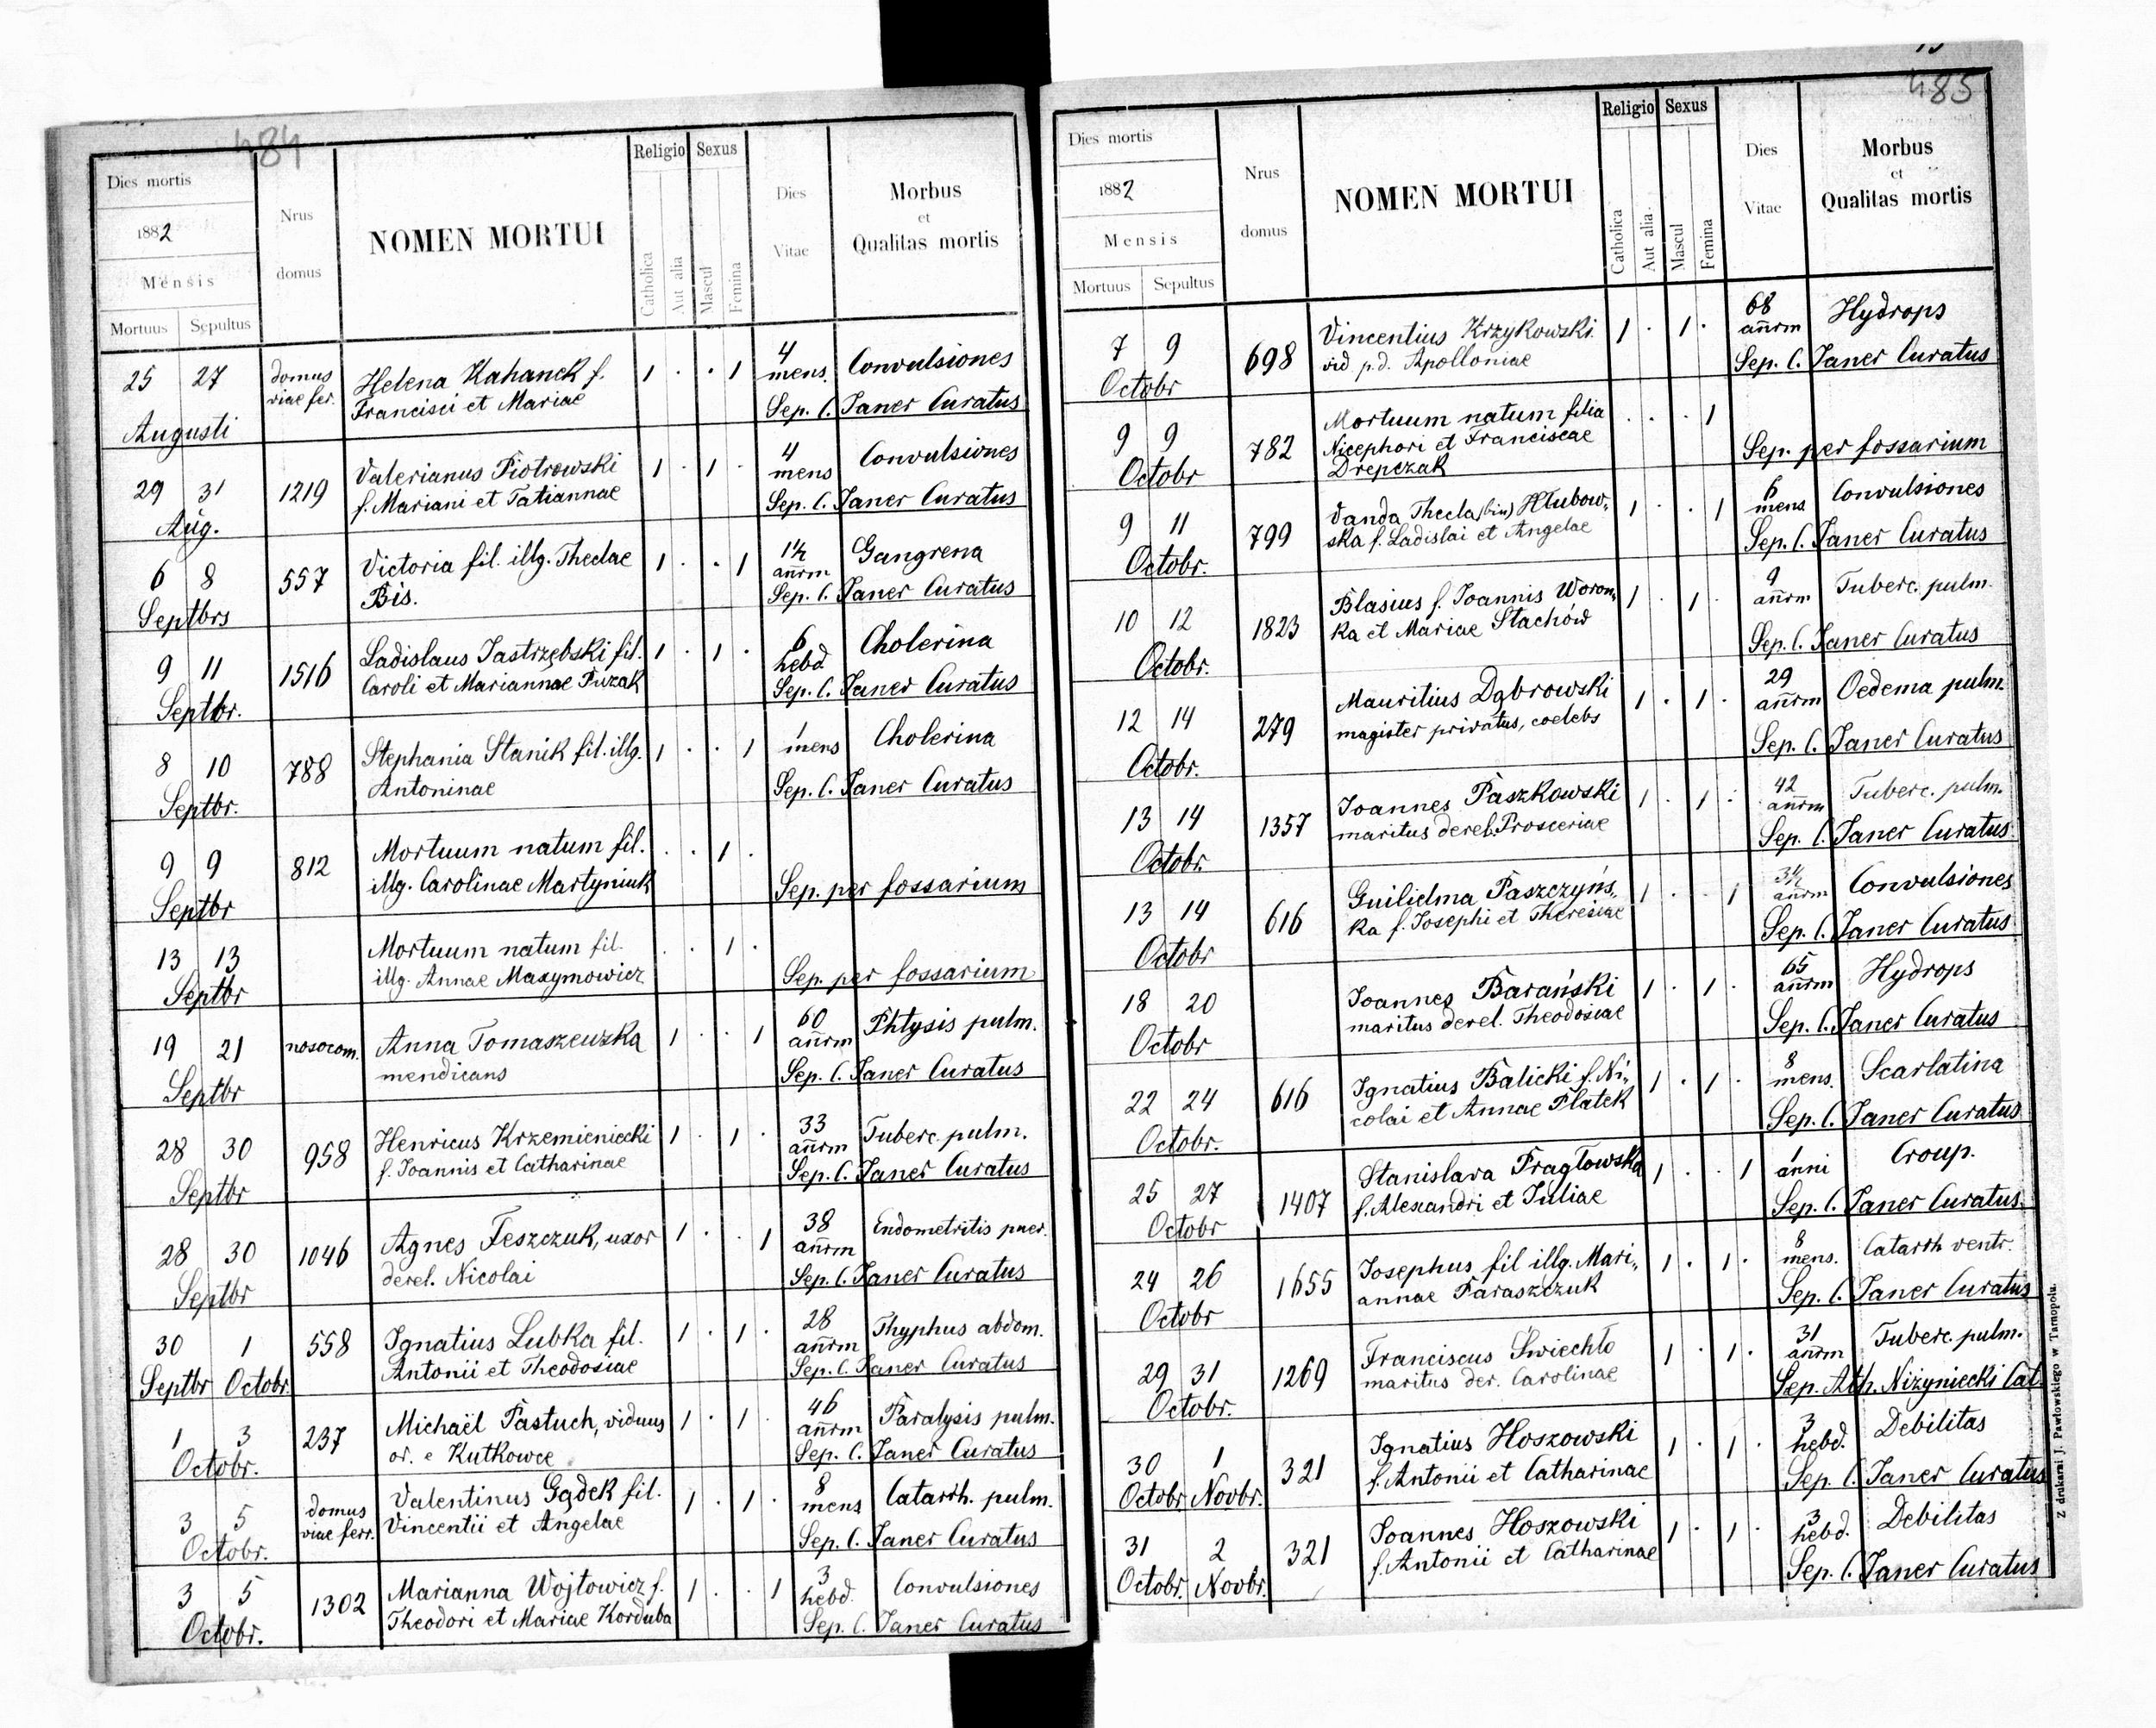 484
Dies mortis
1882
Mensis
Mortuus Sepultus
Nrus
domus
NOMEN MORTUI
Religio Sexus
Catholica
Aut alia
Mascul
Femina
Dies
Vitae
Morbus
et
Qualitas mortis
25 27 domus Helena Kahanek f. 1 . . 1 4 Convulsiones
viae fer. Francisci et Mariae mens.
Augusti Sep. C. Janer Curatus
29 31 1219 Valerianus Piotrowski 1 . 1 . 4 Convulsiones
f. Mariani et Tatiannae mens
Aug. Sep. C. Janer Curatus
6 8 557 Victoria fil. illg. Theclae 1 . . 1 Gangrena
Bis. añrm
Septbrs Sep. C. Janer Curatus
9 11 1516 Ladislaus Jastrzębski fil. 1 . 1 . 6 Cholerina
Caroli et Mariannae Puzak hebd
Septbr. Sep. C. Janer Curatus
8 10 788 Stephania Stanik fil. illg. 1 . . 1 1 Cholerina
Antoninae mens
Septbr. Sep. C. Janer Curatus
9 9 812 Mortuum natum fil. . . 1 .
illg. Carolinae Martyniuk
Septbr Sep. per fossarium
13 13 Mortuum natum fil. . . 1 .
illg. Annae Maxymowicz
Septbr Sep. per fossarium
19 21 nosocom. Anna Tomaszewska 1 . . 1 60 Phtysis pulm.
mendicans añrm
Septbr Sep. C. Janer Curatus
28 30 958 Henricus Krzemieniecki 1 . 1 . 33 Tuberc. pulm.
f. Joannis et Catharinae añrm
Septbr Sep. C. Janer Curatus
28 30 1046 Agnes Feszczuk, uxor 1 . . 1 38 Endometritis puer.
derel. Nicolai añrm
Septbr Sep. C. Janer Curatus
30 1 558 Ignatius Lubka fil. 1 . 1 . 28 Thyphus abdom.
Antonii et Theodosiae añrm
Septbr Octobr. Sep. C. Janer Curatus
1 3 237 Michaël Pastuch, viduus 1 . 1 . 46 Paralysis pulm.
or. e Kutkowce añrm
Octobr. Sep. C. Janer Curatus
3 5 domus Valentinus Gądek fil. 1 . 1 . 8 Catarrh. pulm.
viae ferr. Vincentii et Angelae mens
Octobr. Sep. C. Janer Curatus
3 5 1302 Marianna Wojtowicz f. 1 . . 1 3 Convulsiones
Theodori et Mariae Korduba hebd.
Octobr. Sep. C. Janer Curatus
485
Dies mortis
1882
Mensis
Mortuus Sepultus
Nrus
domus
NOMEN MORTUI
Religio Sexus
Catholica
Aut alia
Mascul
Femina
Dies
Vitae
Morbus
et
Qualitas mortis
7 9 698 Vincentius Krzykowski 1 . 1 . 68 Hydrops
vid p.d. Apolloniae añrm
Octobr Sep. C. Janer Curatus
9 9 782 Mortuum natum filia . . . 1
Nicephori et Franciscae
Drepczak
Octobr Sep. per fossarium
9 11 799 Vanda Thecla (bin) Hłubow„ 1 . . 1 6 Convulsiones
ska f. Ladislai et Angelae mens
Octobr. Sep. C. Janer Curatus
10 12 1823 Blasius f. Joannis Woron„ 1 . 1 . 9 Tuberc. pulm.
ka et Mariae Stachów añrm
Octobr. Sep. C. Janer Curatus
12 14 279 Mauritius Dąbrowski 1 . 1 . 29 Oedema pulm.
magister privatus, coelebs añrm
Octobr. Sep. C. Janer Curatus
13 14 1357 Joannes Paszkowski 1 . 1 . 42 Tuberc. pulm.
maritus derel. Prosceriae añrm
Octobr. Sep. C. Janer Curatus
13 14 616 Guilielma Paszczyńs„ 1 . . 1 Convulsiones
ka f. Josephi et Theresiae añrm
Octobr Sep. C. Janer Curatus
18 20 Joannes Barański 1 . 1 . 65 Hydrops
maritus derel. Theodosiae añrm
Octobr Sep. C. Janer Curatus
22 24 616 Ignatius Balicki f. Ni„ 1 . 1 . 8 Scarlatina
colai et Annae Płatek mens.
Octobr. Sep. C. Janer Curatus
25 27 1407 Stanislava Pragłowska 1 . . 1 1 Croup.
f. Alexandri et Juliae anni
Octobr Sep. C. Janer Curatus
24 26 1655 Josephus fil illg. Mari„ 1 . 1 . 8 Catarrh ventr.
annae Paraszczuk mens.
Octobr Sep. C. Janer Curatus
29 31 1269 Franciscus Świechło 1 . 1 . 31 Tuberc. pulm.
maritus der. Carolinae añrm
Octobr. Sep. Ath. Niżyniecki Cat.
30 1 321 Ignatius Hoszowski 1 . 1 . 3 Debilitas
f. Antonii et Catharinae hebd.
Octobr Novbr. Sep. C. Janer Curatus
31 2 321 Joannes Hoszowski 1 . 1 . 3 Debilitas
f. Antonii et Catharinae hebd.
Octobr. Novbr. Sep. C. Janer Curatus
Z drukarni J. Pawłowskiego w Tarnopolu.